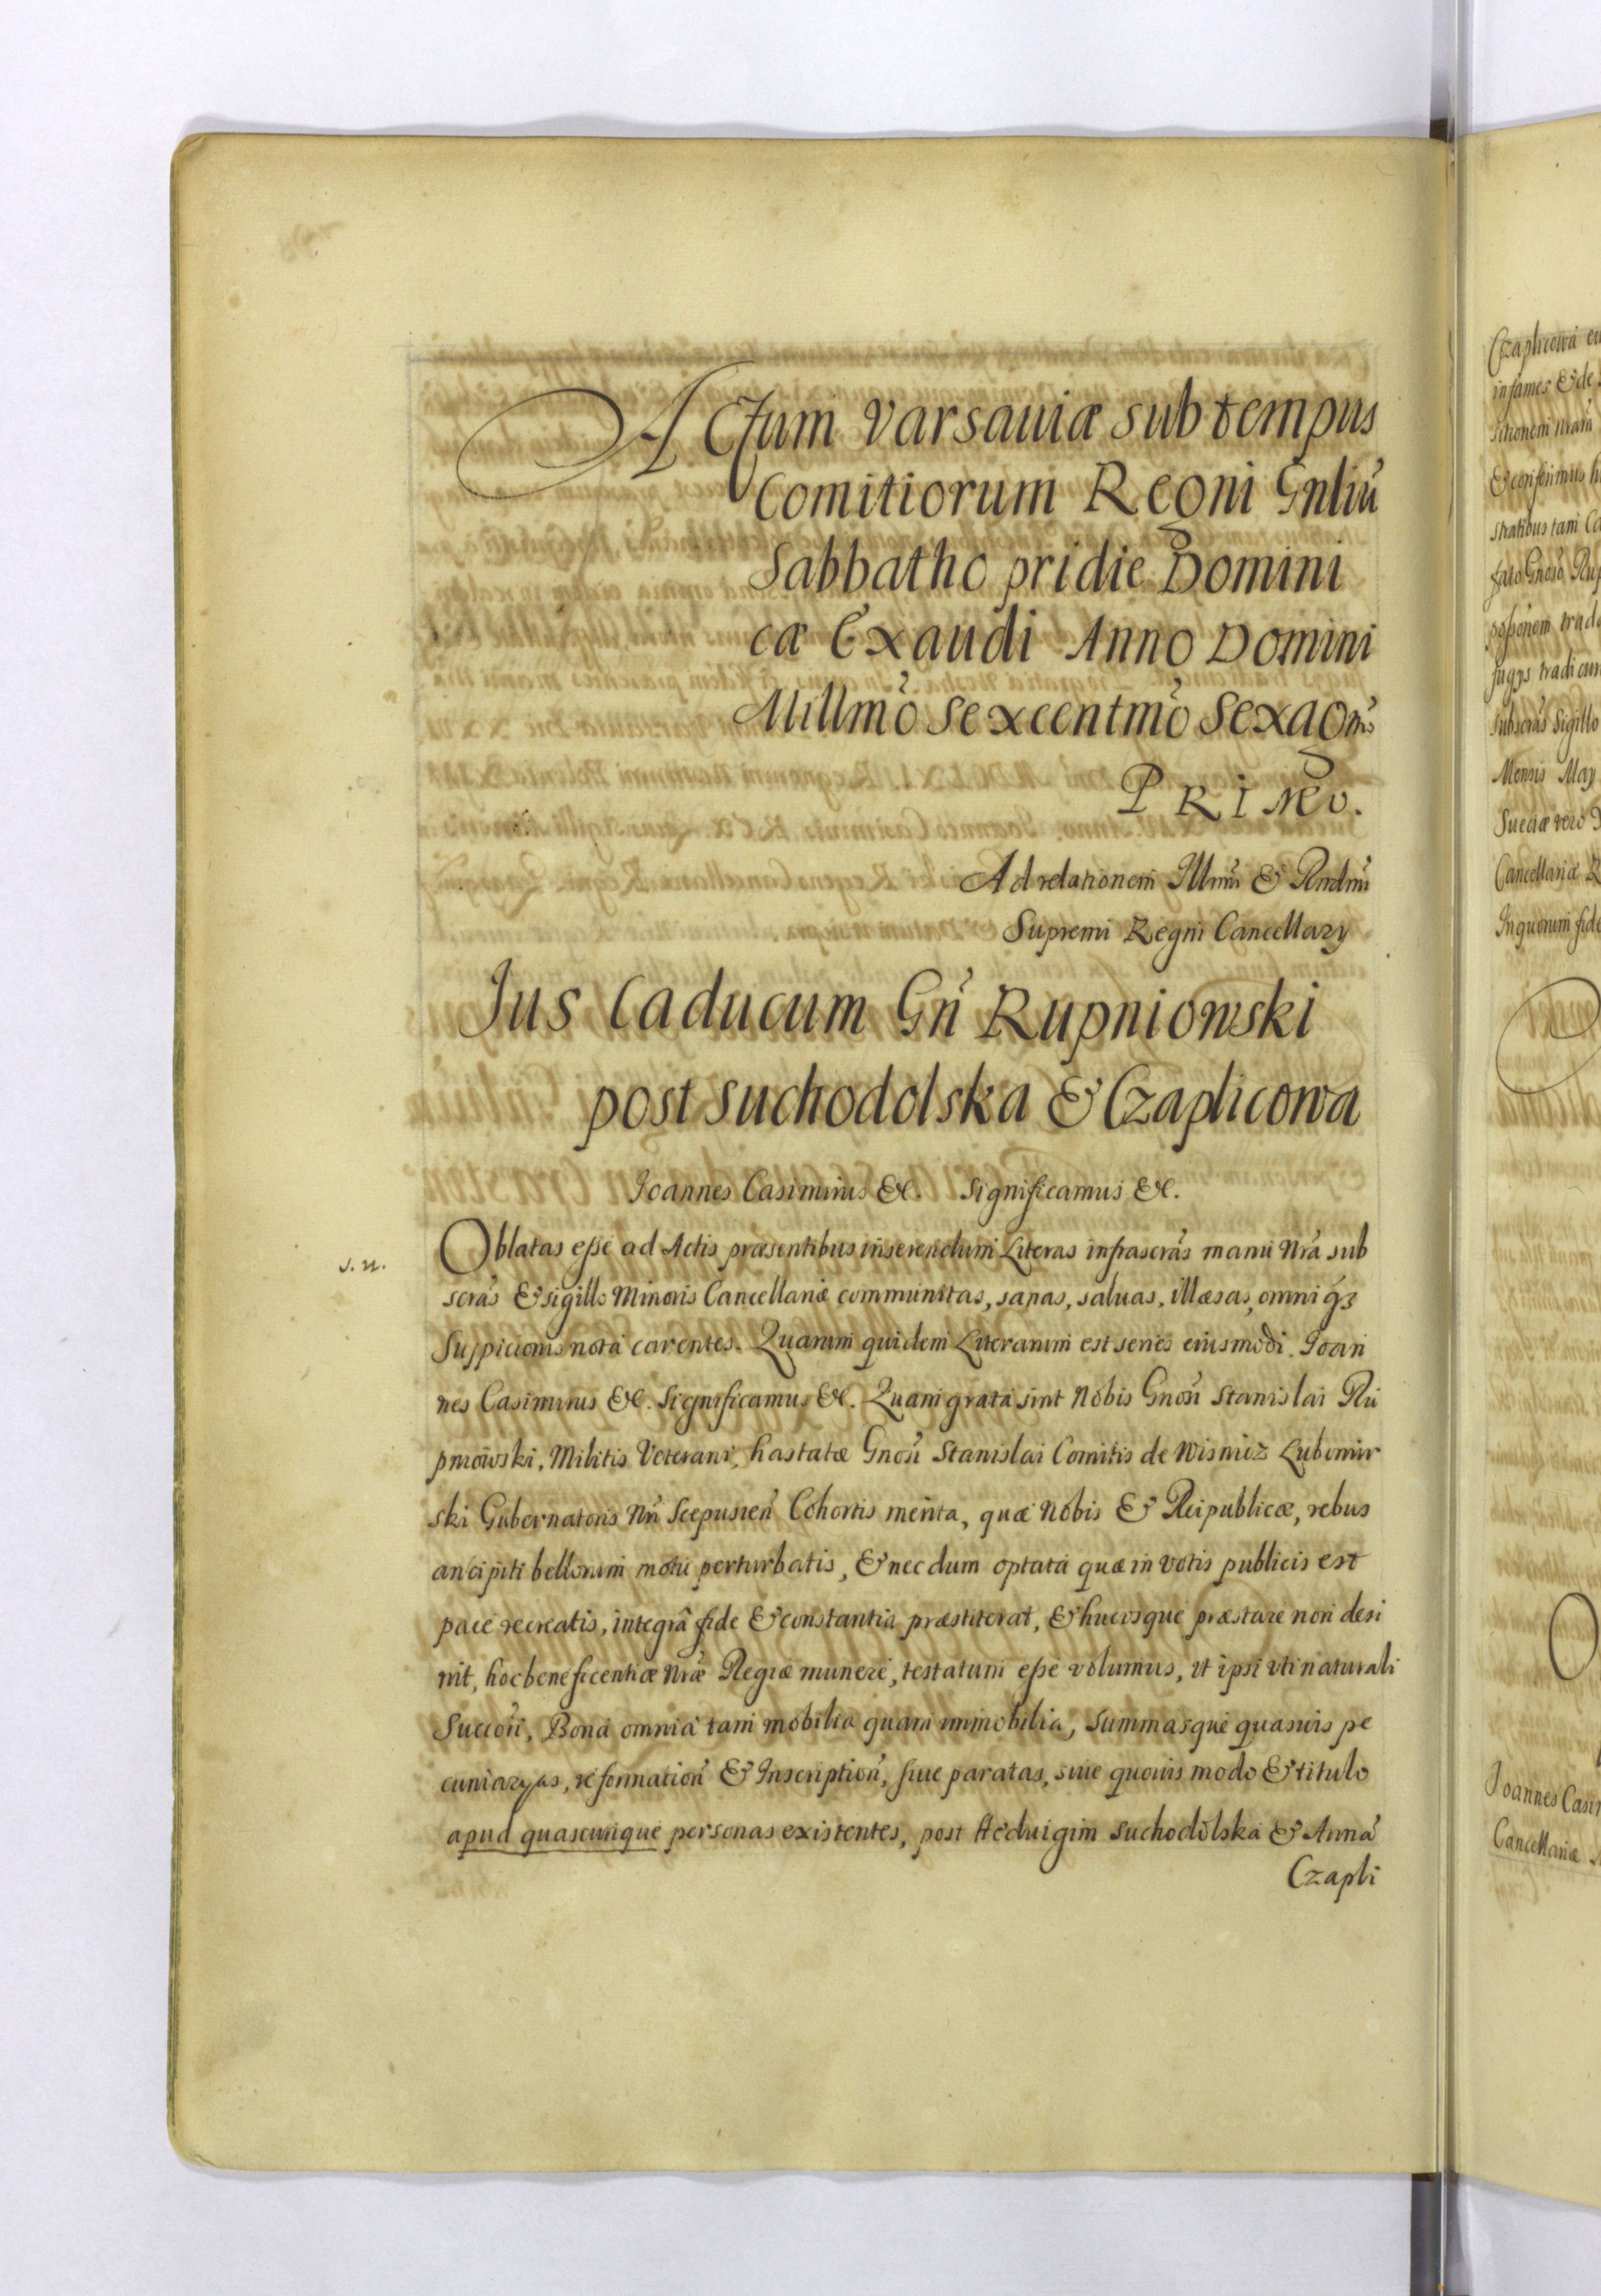 Actum Varsauiæ sub tempus
Comitiorum Regni Gnliu᷈
Sabbatho pridie Domini
cæ Exaudi Anno Domini
Millmo᷈ Sexcentmo᷈ Sexagmo
PRIMO.
Ad relationem Illmi᷈ & Rndmi᷈
Supremi Regni Cancellarÿ
Jus Caducum Gn᷈ Rupniowski
post Suchodolska & Czaplicowa
Ioannes Casimirus &c. Significamus &c.
s. n.
Oblatas eſse ad Actis præsentibus inserendum Literas infrascra᷈s manu Nra᷈ sub
scra᷈s & sigillo Minoris Cancellariæ communitas, sanas, saluas, illæsas, omniq₃
Suspicionis nota carentes. Quarum quidem Literarum est series eiusmodi. Ioan
nes Casimirus &c. Significamus &c. Quam grata sint Nobis Gnosi᷈ Stanislai Ru
pniowski, Militis Veterani, hastatæ Gnosi᷈ Stanislai Comitis de Wisnicz Lubomir
ski Gubernatoris Nri᷈ Scepusien᷈ Cohortis merita, quæ Nobis & Reipublicæ, rebus
ancipiti bellorum motu perturbatis, & necdum optata quæ in votis publicis est
pace recreatis, integrâ fide & constantia præstiterat, & hucusque præstare non desi
nit, hoc beneficentiæ Nræ᷈ Regiæ munere, testatum eſse volumus, vt ipsi vti naturali
Succori᷈, Bona omnia tam mobilia quam immobilia, Summasque quasuis pe
cuniarÿas, reformation᷈ & Inscription᷈, siue paratas, siue quouis modo & titulo
apud quascunque personas existentes, post Heduigim Suchodolska & Anna᷈
Czapli